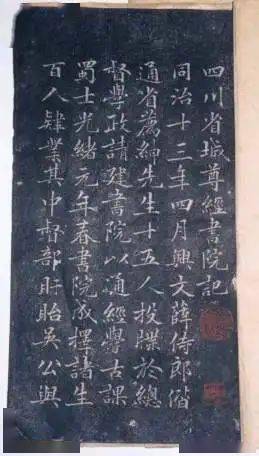 四川省城尊經書院記
同治十三年四月興文薛侍郎偕
通省薦紳先生十五人投牒於總
督學政請建書院以通經學古課
蜀士光緒元年春書院成擇諸生
百人肄業其中督部盱眙吳公與